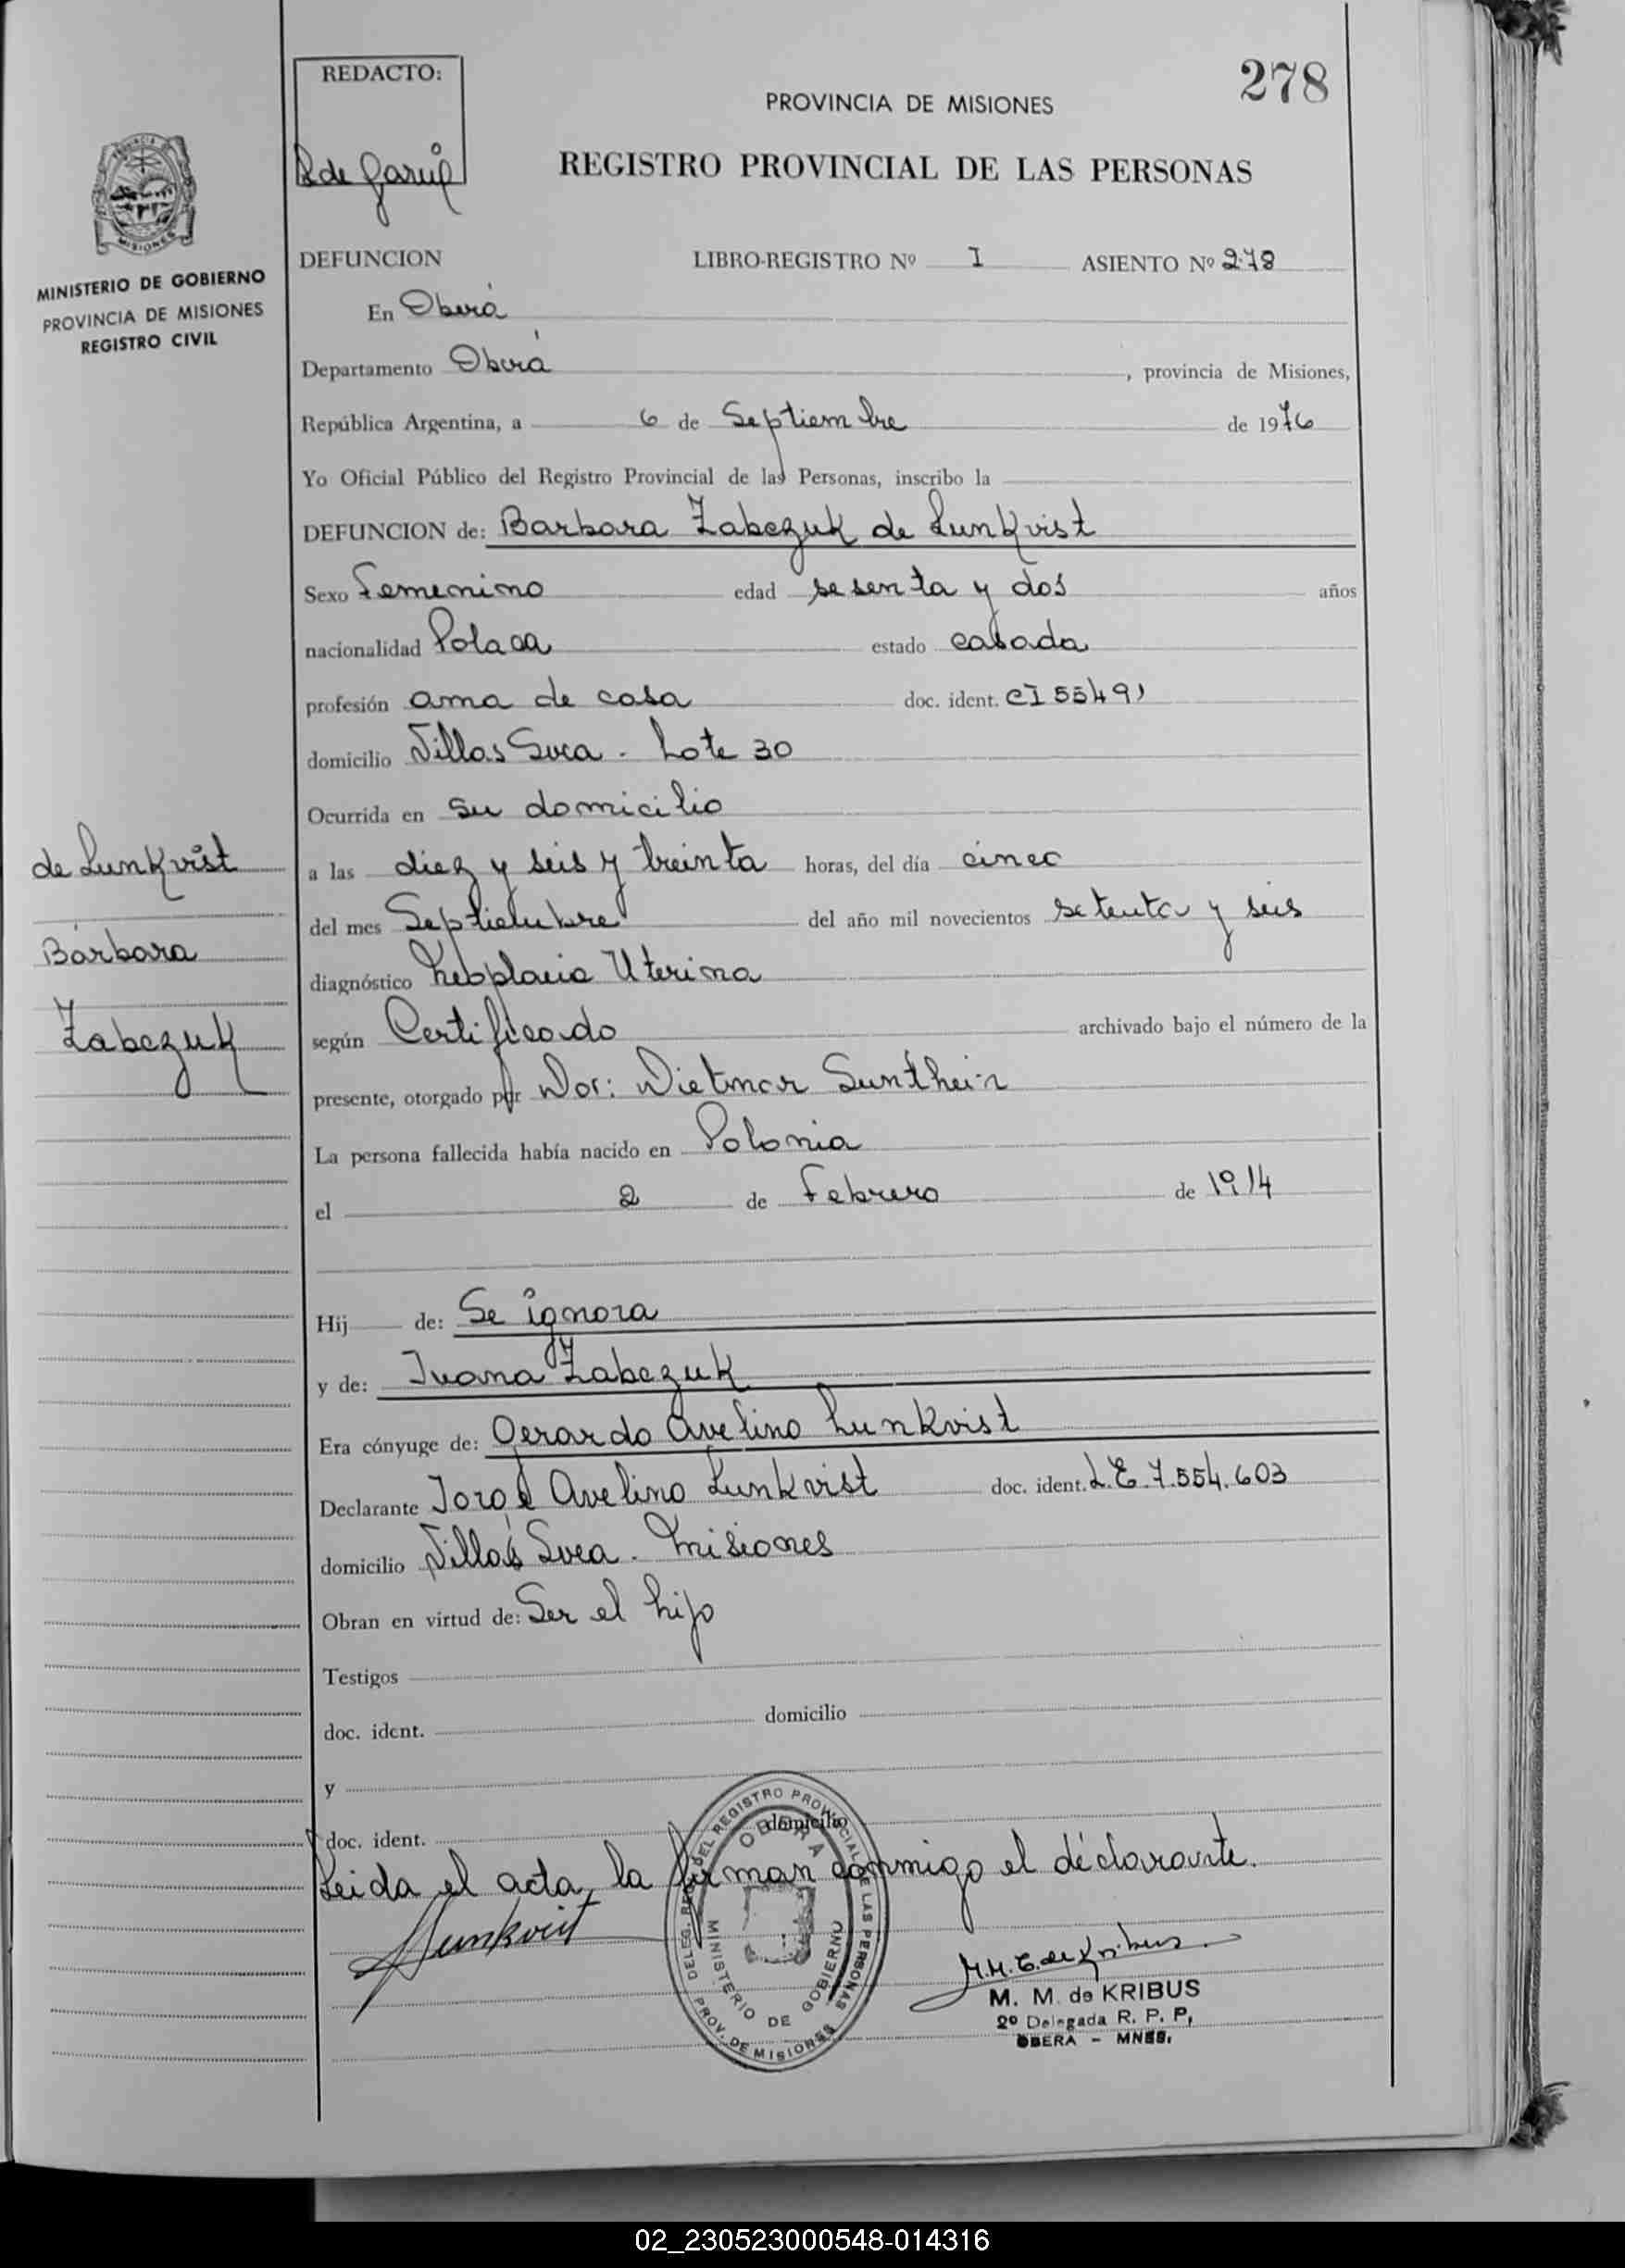 REDACTO:
278
PROVINCIA DE MISIONES
REGISTRO PROVINCIAL DE LAS PERSONAS
MISIONES
MINISTERIO DE GOBIERNO
PROVINCIA DE MISIONES
REGISTRO CIVIL
DEFUNCION LIBRO-REGISTRO Nº I ASIENTO Nº 278
En Oberá
Departamento Oberá, provincia de Misiones,
República Argentina, a 6 de Septiembre de 1976
Yo Oficial Público del Registro Provincial de las Personas, inscribo la
DEFUNCION de: Barbara Zabczuk de Lunkvist
Sexo Femenino edad sesenta y dos años
nacionalidad Polaca estado casada
profesión ama de casa doc. ident. CI 55491
domicilio Villas Svea - Lote 30
Ocurrida en su domicilio
a las diez y seis y treinta horas, del día cinco
del mes Septiembre del año mil novecientos setenta y seis
diagnóstico Neoplacia Uterina
según Certificado archivado bajo el número de la
presente, otorgado por Dor: Dietmar Sunthein
La persona fallecida había nacido en Polonia
el 2 de Febrero de 1914
Hij de: Se ignora
y de: Juana Zabczuk
Era cónyuge de: Gerardo Avelino Lunkvist
Declarante Jorge Avelino Lunkvist doc. ident. L.E. 7.554.603
domicilio Villas Svea - Misiones
Obran en virtud de: Ser el hijo
Testigos
doc. ident. domicilio
y
doc. ident. domicilio
Leida el acta, la firman conmigo el declarante.
de Lunkvist
Bárbara
Zabczuk
Lunkvist
DELEG. DEL REGISTRO PROVINCIAL DE LAS PERSONAS
OBERA
MINISTERIO DE GOBIERNO
PROV. DE MISIONES
M. M. de Kribus
M. M. de KRIBUS
2º Delegada R. P. P.
OBERA - MNES.
02_230523000548-014316